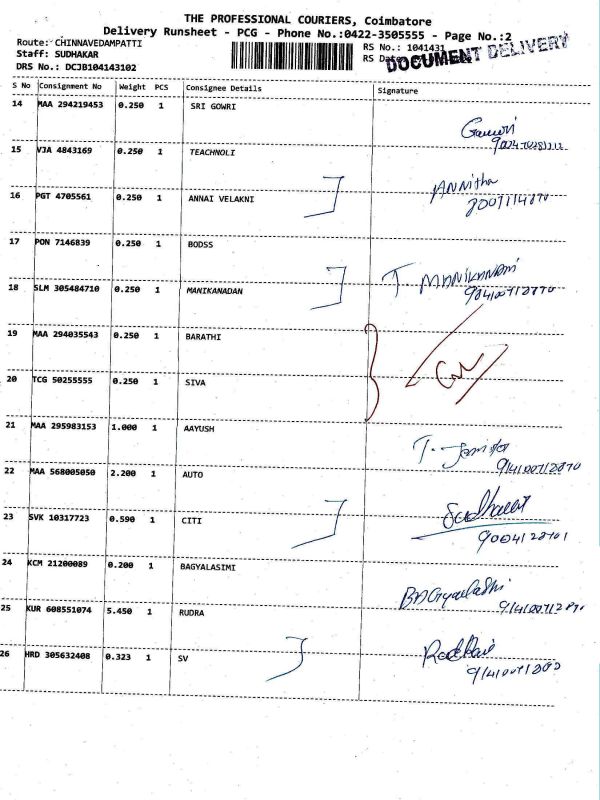 THE PROFESSIONAL COURIERS, Coimbatore
Delivery Runsheet - PCG - Phone No.:0422-3505555 - Page No.:2
Route: CHINNAVEDAMPATTI
RS No.: 1041431
Staff: SUDHAKAR
RS
DOCUMENT DELIVERY
DRS No.: DCJB104143102
S No Consignment No Weight PCS Consignee Details Signature
14 MAA 294219453 0.250 1 SRI GOWRI
Gowri
15 VJA 4843169 0.250 1 TEACHNOLI
ANNitha
16 PGT 4705561 0.250 1 ANNAI VELAKNI
17 PON 7146839 0.250 1 BODSS
T MANIKANDAN
18 SLM 305484710 0.250 1 MANIKANADAN
19 MAA 294035543 0.250 1 BARATHI
20 TCG 50255555 0.250 1 SIVA
21 MAA 295983153 1.000 1 AAYUSH
22 MAA 568005050 2.200 1 AUTO
23 SVK 10317723 0.590 1 CITI
24 KCM 21200089 0.200 1 BAGYALASIMI
25 KUR 608551074 5.450 1 RUDRA
26 HRD 305632408 0.323 1 SV